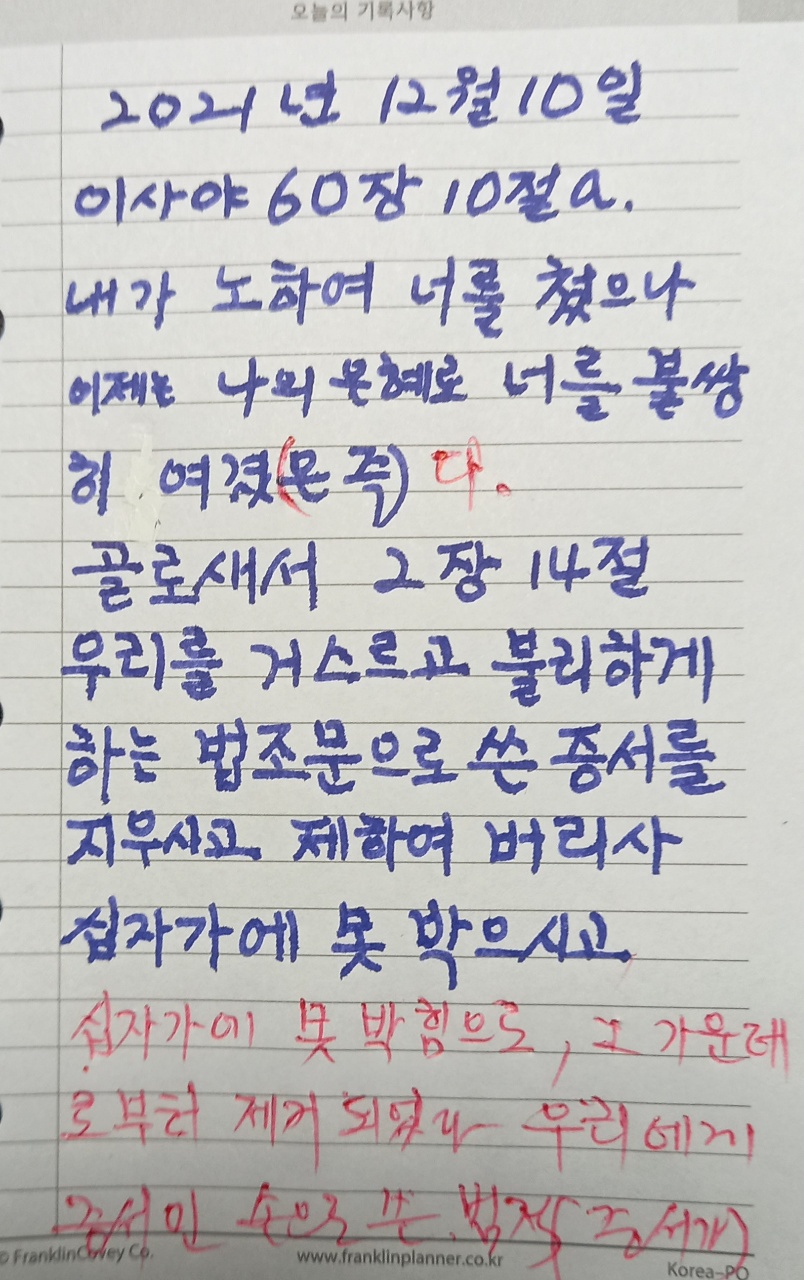 오늘의 기록사항
2021년 12월 10일
이사야 60장 10절a.
내가 노하여 너를 쳤으나
이제는 나의 은혜로 너를 불쌍
히 여겼(은 즉) 다.
골로새서 2장 14절
우리를 거스르고 불리하게
하는 법조문으로 쓴 증서를
지우시고 제하여 버리사
십자가에 못 박으시고
십자가에 못 박힘으로, 그 가운데
로부터 제거 되었다 우리에게
증서인 손으로 쓴 법적 증서가)
© FranklinCovey Co. www.franklinplanner.co.kr Korea-PO